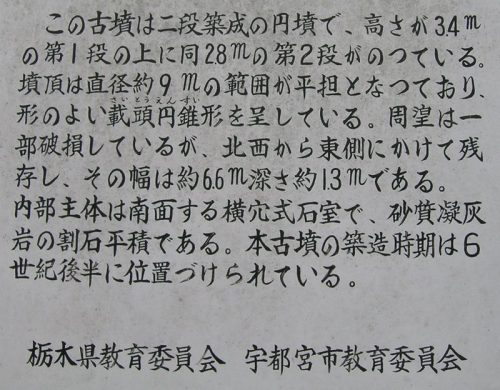 この古墳は二段築成の円墳で、高さが3.4m
の第1段の上に同2.8mの第2段がのつている。
墳頂は直径約9mの範囲が平担となつており、
さいとうえんすい
形のよい載頭円錐形を呈している。周湟は一
部破損しているが、北西から東側にかけて残
存し、その幅は約6.6m深さ約1.3mである。
内部主体は南面する横穴式石室で、砂質凝灰
岩の割石平積である。本古墳の築造時期は6
世紀後半に位置づけられている。
栃木県教育委員会 宇都宮市教育委員会